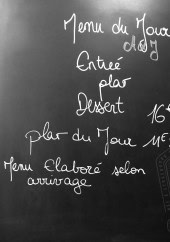 Menu du Jour
Entreé
plat
Dessert
16€
plat du Jour 11€
Menu Elaboré selon
arrivage